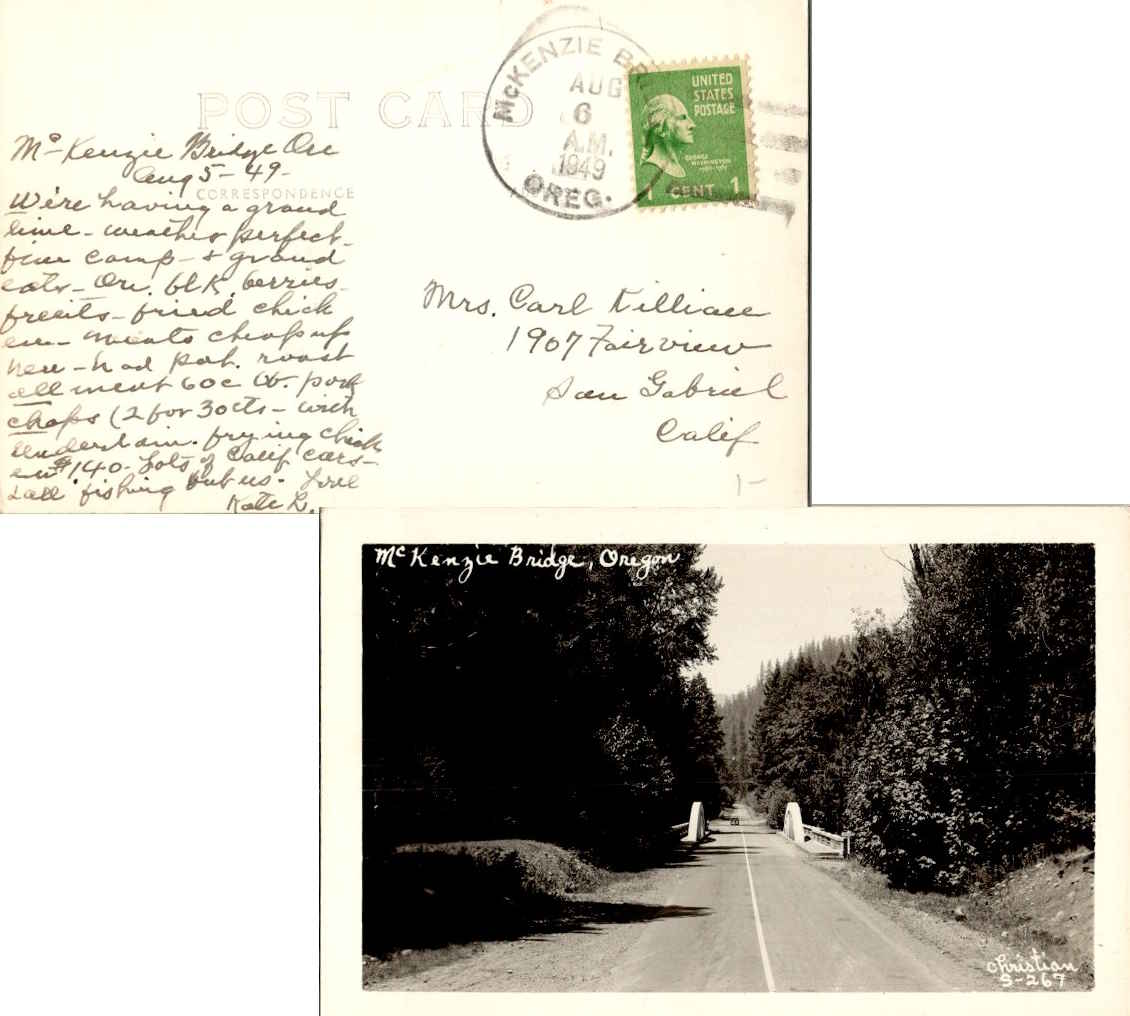 POST CARD
CORRESPONDENCE
McKENZIE BR
AUG
6
A.M.
1949
OREG.
UNITED
STATES
POSTAGE
GEORGE
WASHINGTON
1 CENT 1
Mc Kenzie Bridge Ore
Aug 5 - 49 -
We're having a grand
time - weather perfect -
fine camp - & grand
eats - Ore. blk. berries -
fruits - fried chick
en - meats cheap up
here - had pot. roast
all meat 60c lb. pork
chops (2 for 30cts - with
tenderloin. frying chick
en $1.40 - Lots of Calif cars -
all fishing but us. Love
Kate L.
Mrs. Carl Killian
1907 Fairview
San Gabriel
Calif
1-
Mc Kenzie Bridge, Oregon
Christian
S-267